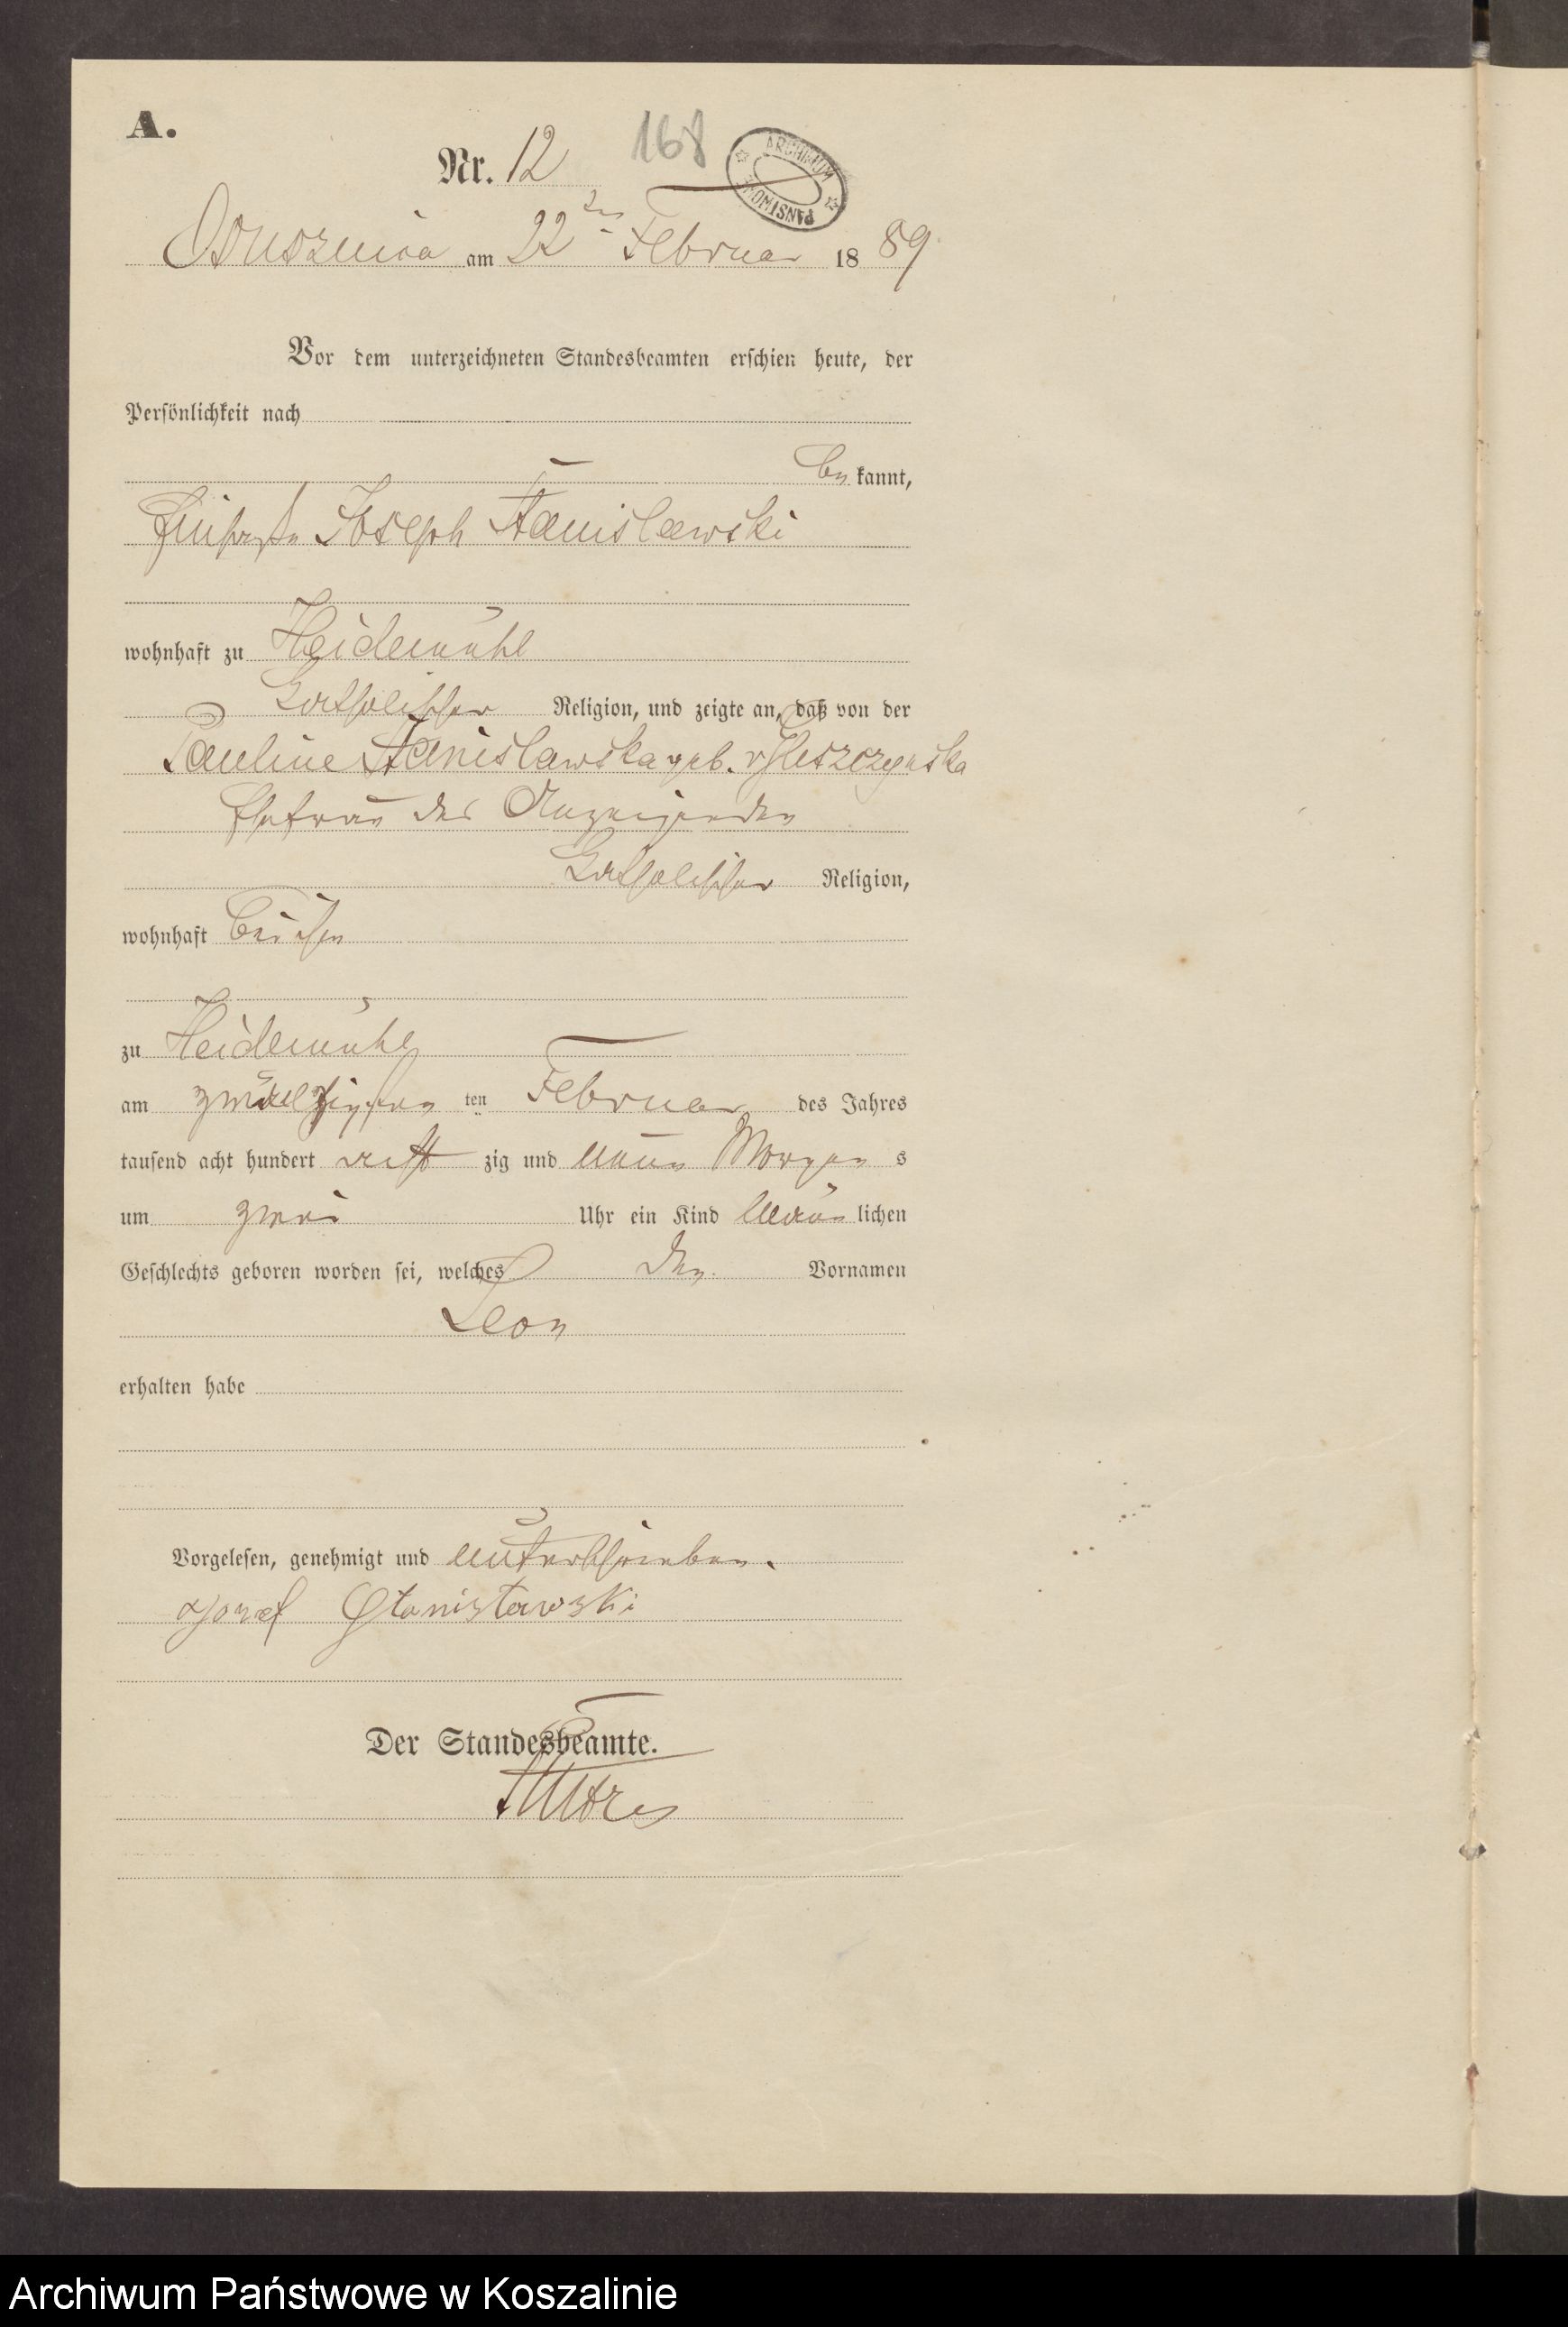 A.
Nr. 12 168
ARCHIWUM PAŃSTWOWE
Ossusznica am 22ten Februar 1889
Vor dem unterzeichneten Standesbeamten erschien heute, der
Persönlichkeit nach
be kannt,
Joseph Stanislawski
wohnhaft zu Heidemühl
katholischer Religion, und zeigte an, daß von der
Pauline Stanislawska geb.
Ehefrau des Anzeigenden
katholischer Religion,
wohnhaft bei ihm
zu Heidemühl
am ten Februar des Jahres
tausend acht hundert acht zig und neun Morgen s
um zwei Uhr ein Kind männ lichen
Geschlechts geboren worden sei, welches den Vornamen
Leon
erhalten habe
Vorgelesen, genehmigt und unterschrieben.
Jozef Stanisławski
Der Standesbeamte.
Archiwum Państwowe w Koszalinie